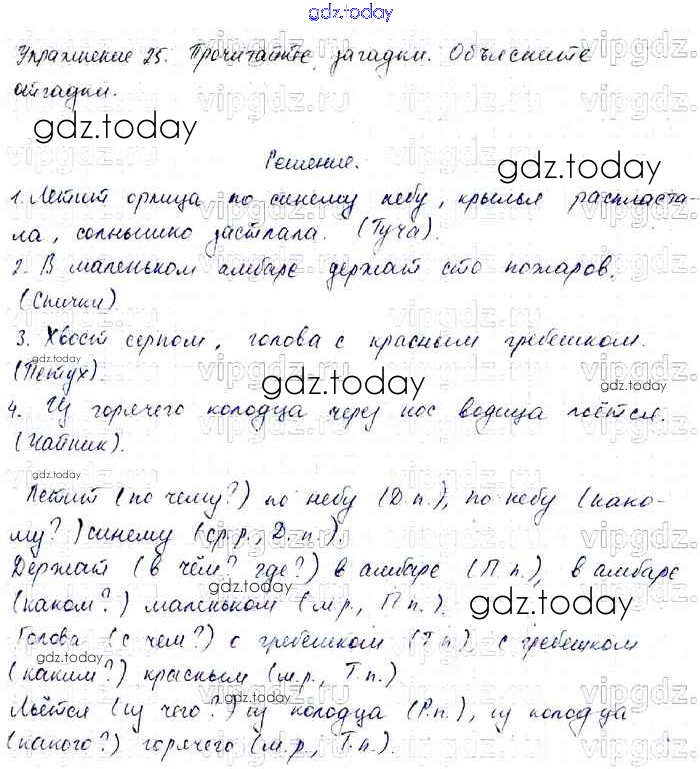 gdz.today
Упражнение 25. Прочитайте загадки. Объясните
отгадки.
gdz.today
Решение.
gdz.today
1. Летит орлица по синему небу, крылья распласта-
ла, солнышко застлала. (Туча).
2. В маленьком амбаре держат сто пожаров.
(Спички)
3. Хвост серпом, голова с красным гребешком.
gdz.today
(Петух).
gdz.today
4. Из горячего колодца через нос водица льётся.
gdz.today
(Чайник).
gdz.today
Летит (по чему?) по небу (Д.п.), по небу (како-
му?) синему (ср.р., Д.п.).
gdz.today
Держат (в чём? где?) в амбаре (П.п.), в амбаре
gdz.today
(каком?) маленьком (м.р., П.п.).
gdz.today
Голова (с чем?) с гребешком (Т.п), с гребешком
gdz.today
(каким?) красным (м.р., Т.п.)
gdz.today
Льётся (из чего?) из колодца (Р.п.), из колодца
(какого?) горячего (м.р., Т.п.).